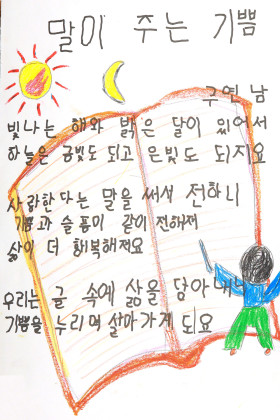 말이 주는 기쁨
구연남
빛나는 해와 밝은 달이 있어서
하늘은 금빛도 되고 은빛도 되지요
사랑한다는 말을 써서 전하니
기쁨과 슬픔이 같이 전해져
삶이 더 행복해져요
우리는 글 속에 삶을 담아내니
기쁨을 누리며 살아가게 되요